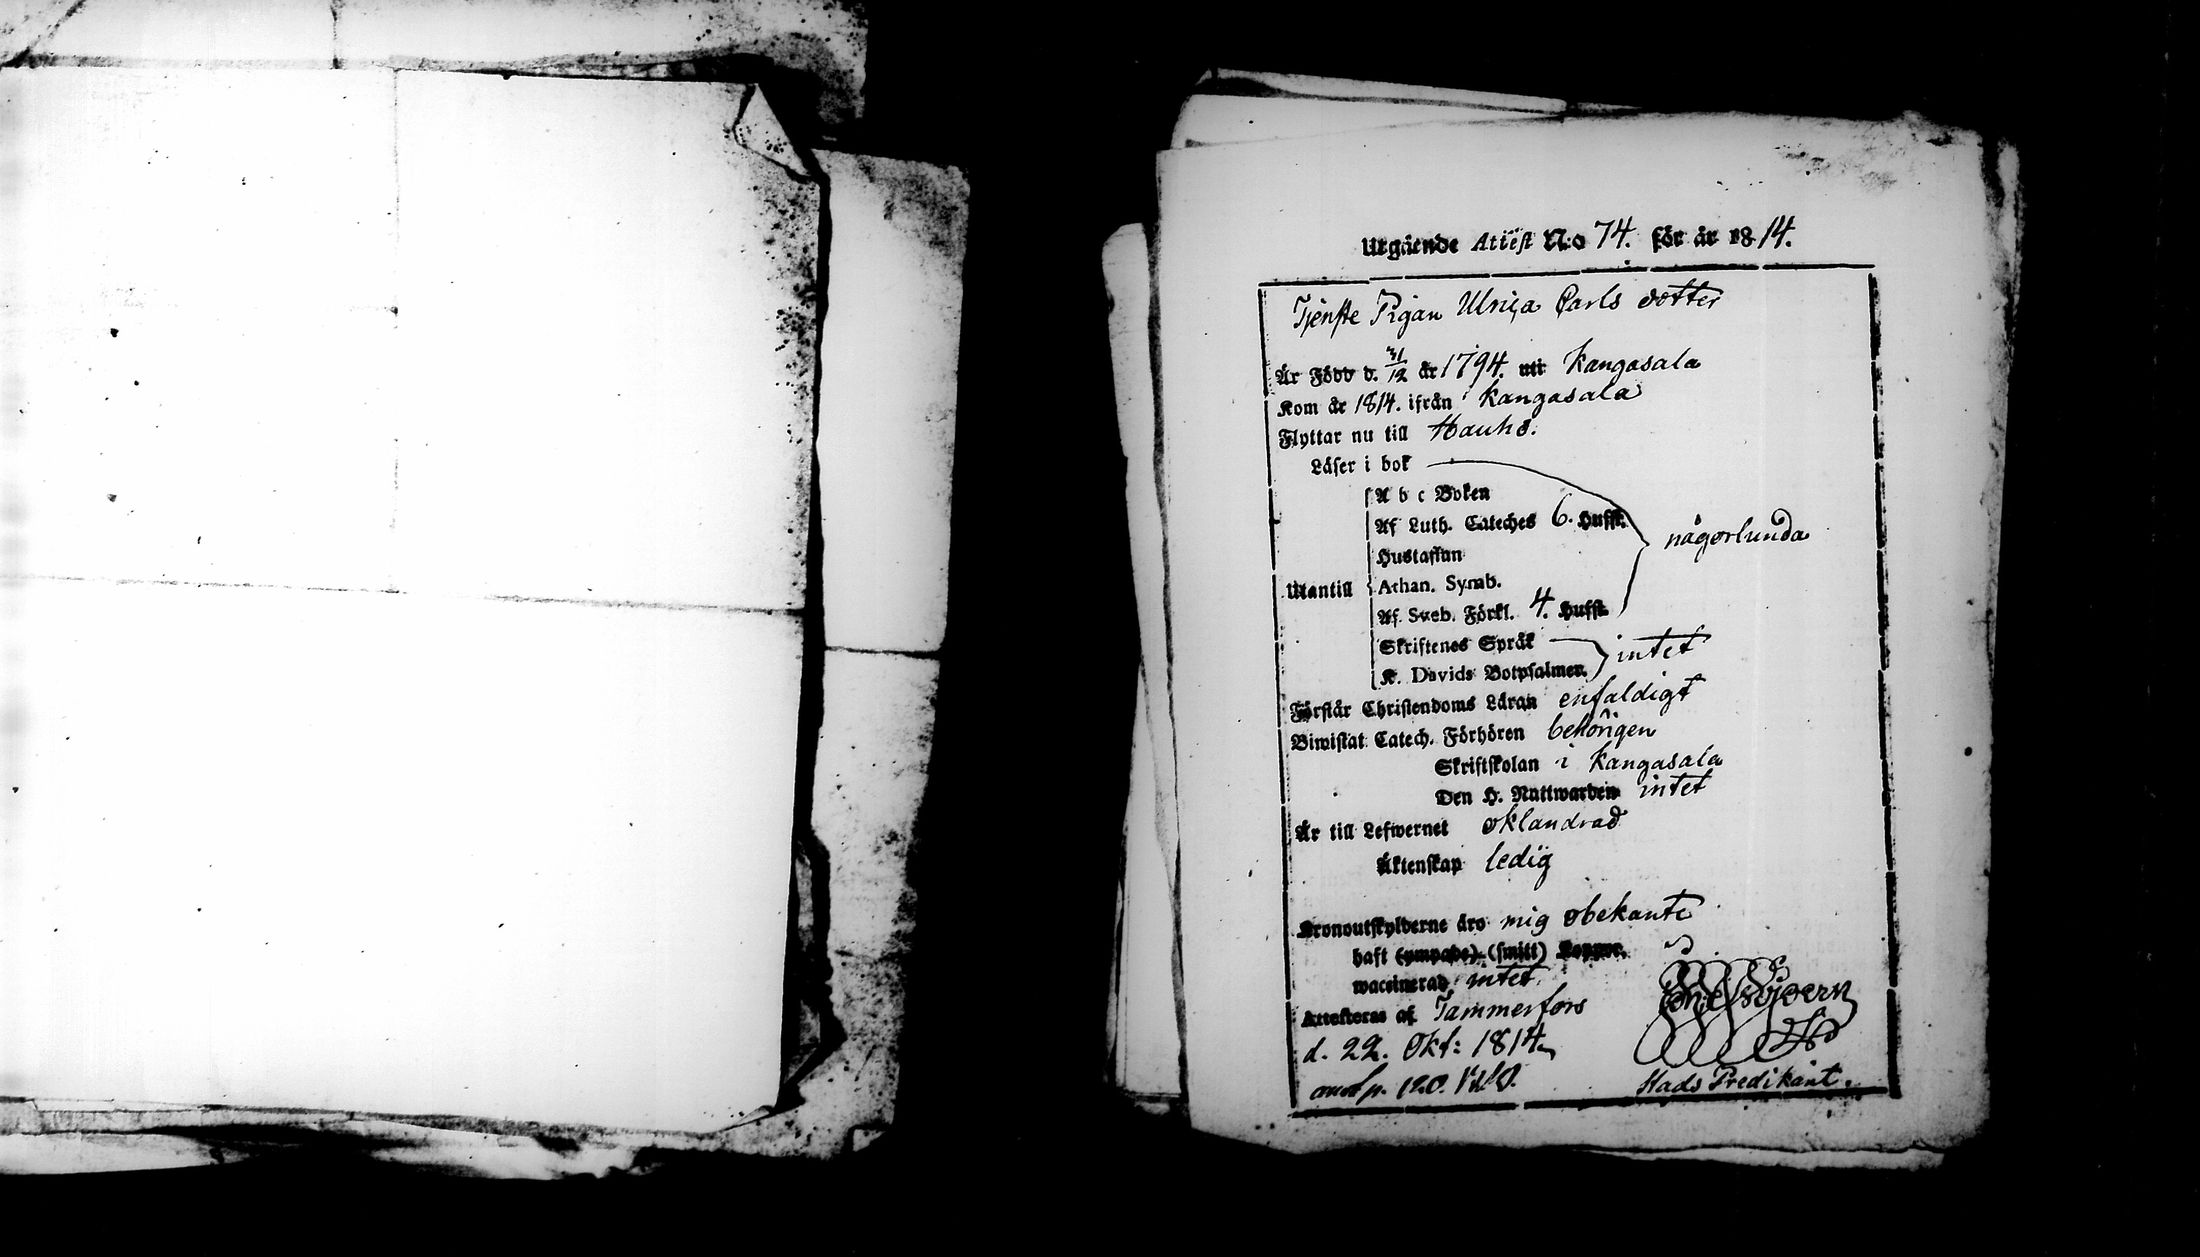 Utgående Attest N:o 74. för år 1814.
Tjenste Pigan Ulrica Carls dotter
Är Född d. 31/12 år 1794. uti Kangasala
Kom år 1814. ifrån Kangasala
Flyttar nu till Hauho.
Läser i bok
A b c Boken
Af Luth. Cateches 6. Hufst.
någorlunda
Hustaflan
Utantill
Athan. Symb.
Af Sveb. Förkl. 4. Hufst.
Skriftenes Språk
intet
K. Davids Botpsalmer.
Förstår Christendoms Läran enfaldigt
Biwistat Catech. Förhören behörigen
Skriftskolan i Kangasala
Den H. Nattwarden intet
Är till Lefwernet oklandrad
Äktenskap ledig
Kronoutskylderne äro mig obekante
haft (ympade) (smitt) Koppor.
waccinerad intet
Attesteras af Tammerfors
d. 22. Okt: 1814
p. 120.
Stads Predikant.